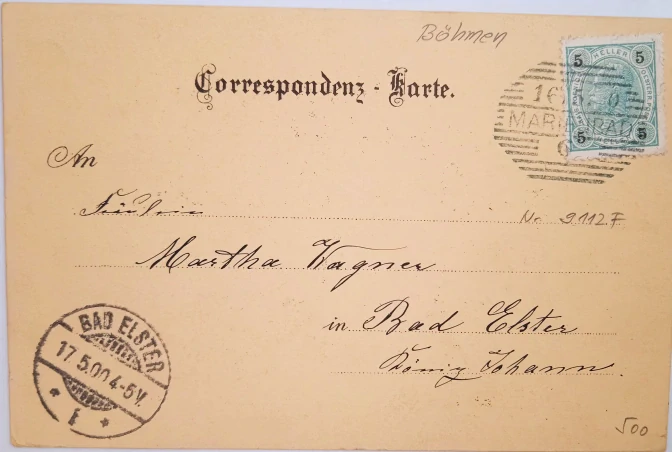 Böhmen
5 HELLER 5
Correspondenz-Karte.
16
MARIENBAD
5 5
An
Fräulein
No 9112.F
Martha Wagner
in Bad Elster
König Johann.
BAD ELSTER
17.5.00.4-5V.
* i *
500